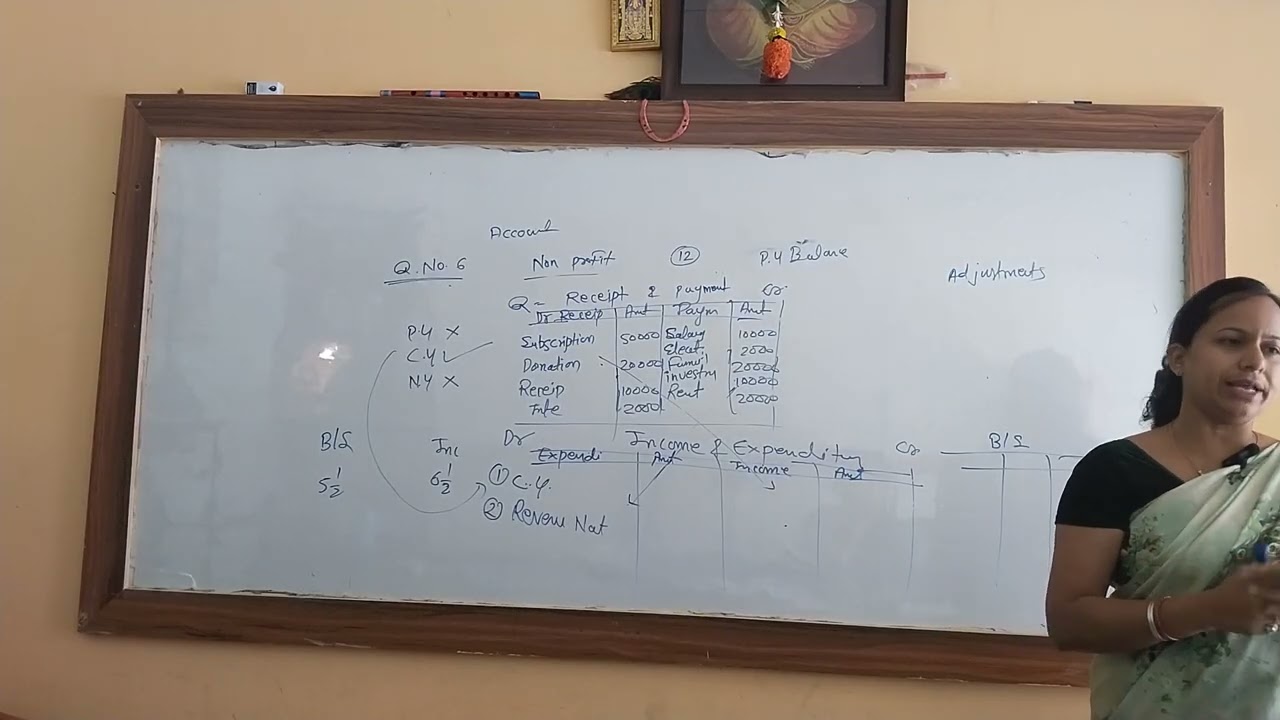 Account
Q. No. 6 Non profit 12 P.Y Balance Adjustments
Q- Receipt & Payment Cr.
Dr Receip Amt Paym Amt
P.Y X
Subscription 50000 Salary 10000
C.Y ✓
Elect 2000
Donation 20000 20000
N.Y X
investm 10000
Receip 10000 Rent 20000
2000
Dr Income & Expenditur Cr B/S
B/S Inc Expendi Amt Income Amt
5 1/2 6 1/2 ① C.Y.
② Nat